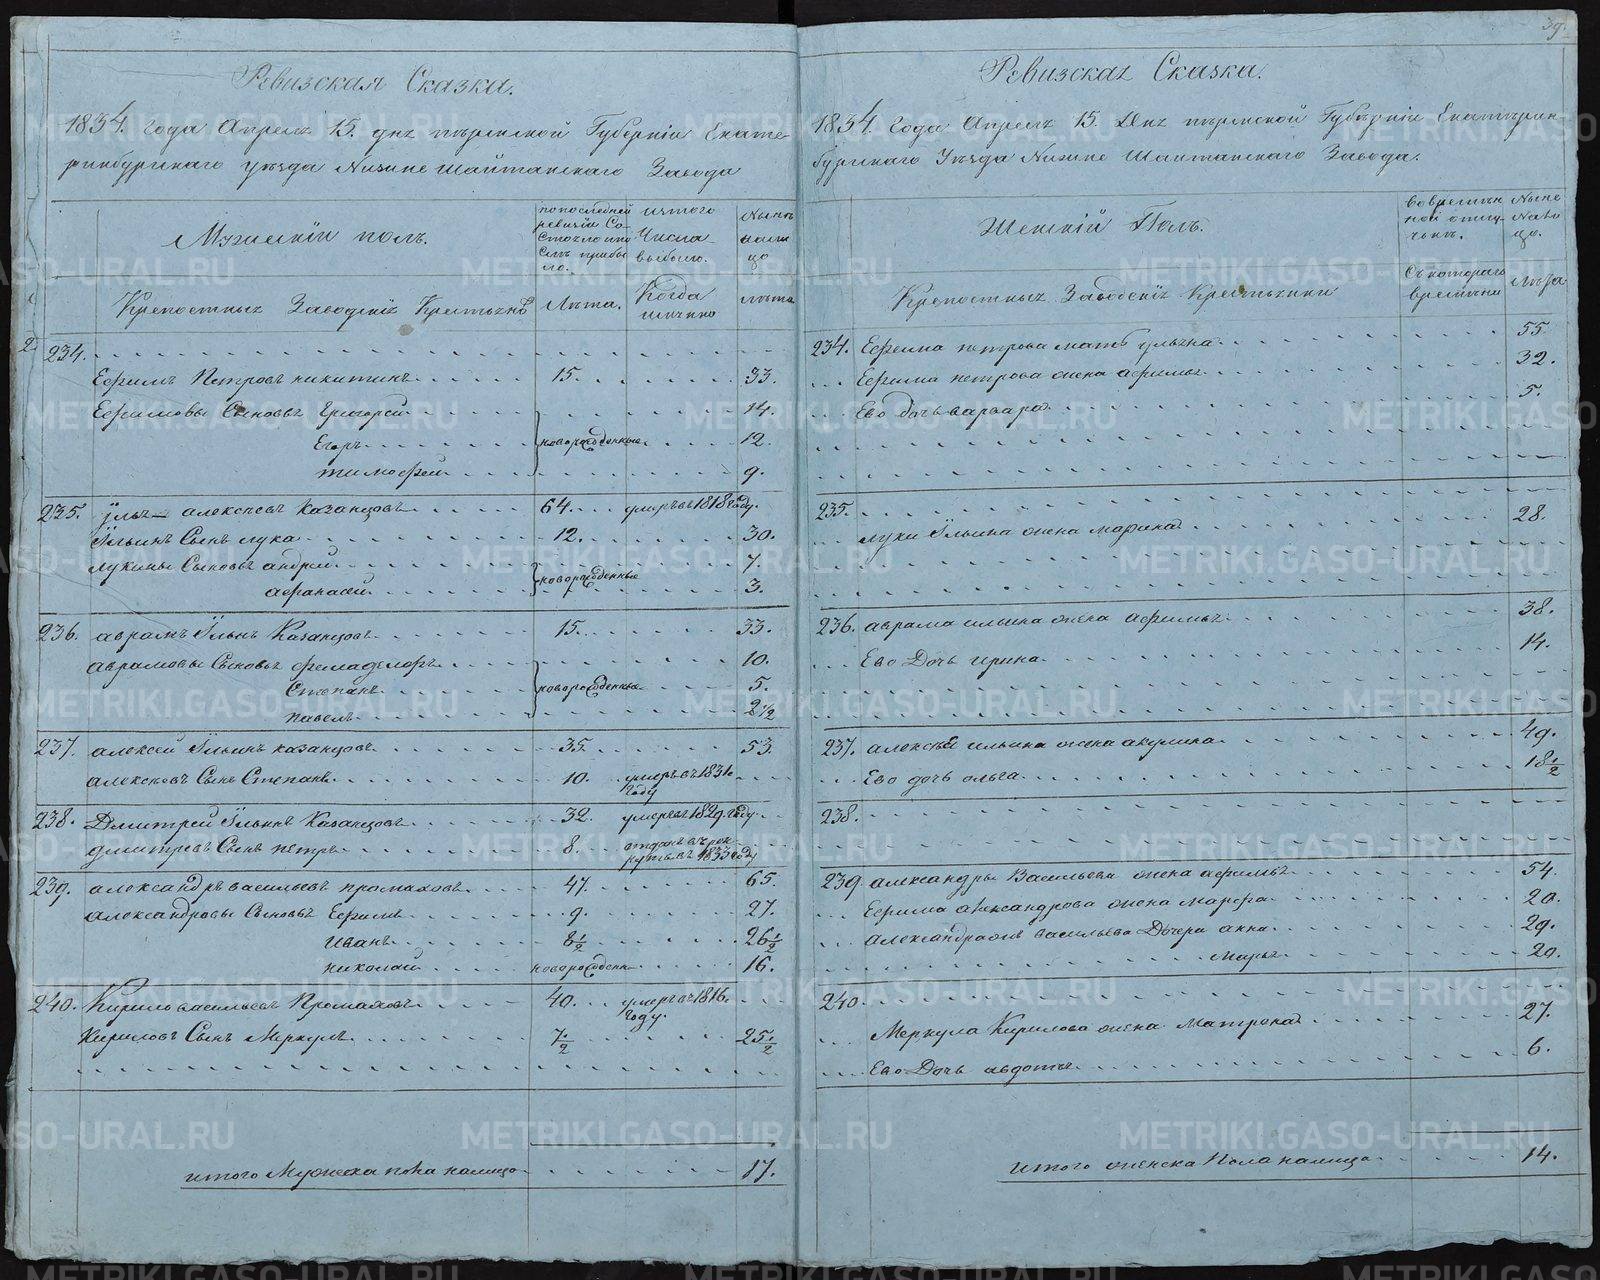 39.
Ревизская Сказка.
1834. года Апреля 15. дня пермской Губерніи Екате-
ринбургскаго уезда Нижне шайтанскаго Завода
Мужескій полъ.
по последней ревизіи Состояло и после прибыло.
изъ того Числа выбыло.
Ныне налицо
Крепостныхъ Заводскіхъ Крестьянъ
Лѣта.
Когда имянно
лѣта
234.
Ефимъ Петровъ никитинъ 15. 33.
Ефимовы Сыновья Григорей 14.
Егоръ новорожденные 12
тимофей 9.
235. Илья алексеевъ казанцовъ 64. умеръ въ 1818 году.
Ильинъ Сынъ лука 12. 30.
лукины Сыновья андрей 7.
новорожденные
афанасей 3.
236. аврамъ Ильинъ Казанцовъ 15. 33.
аврамовы Сыновья 10.
Степанъ новорожденные 5.
павелъ 2 1/2
237. алексей Ильинъ казанцовъ 35. 53.
алексеевъ Сынъ Степанъ 10. умеръ въ 1831. году
238. Дмитрей Ильинъ Казанцовъ 32. умеръ въ 1829. году
дмитревъ Сынъ петръ 8. отданъ въ рекруты въ 1833 году
239. александръ васильевъ промаховъ 47. 65.
александровы Сыновья Ефимъ 9. 27.
Иванъ 8 1/2 26 1/2
николай новорожден 16.
240. Кирило васильевъ Промаховъ 40. умеръ въ 1816. году.
Кириловъ Сынъ Меркулъ 7 1/2 25 1/2
итого Мужеска пола налицо 17.
Ревизская Сказка.
1834. года Апреля 15. Дня пермской Губерніи Екатерин-
бургскаго Уезда Нижне шайтанскаго Завода.
Женскій Полъ.
во временной отлучьке.
Ныне Налицо.
Крепостныхъ Заводскіхъ Крестьянки
Съ котораго времени
Лѣта
234. Ефима петрова мать ульяна 55
Ефима петрова жена афимья 32.
Ево дочь варвара 5.
235.
луки Ильина жена марина 28.
236. аврама ильина жена афимья 38.
Ево Дочь ирина 14.
237. алексея ильина жена акулина 49.
Ево дочь ольга 18 1/2
238.
239. александры Васильева жена афимья 54.
Ефима александрова жена марфа 20.
александра васильева Дочери анна 29.
Марья 20.
240.
Меркула Кирилова жена Матрона 27.
Ево Дочь авдотья 6.
итого женска Пола налицо 14.
METRIKI.GASO-URAL.RU